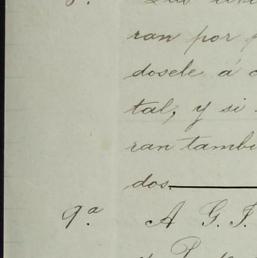 ran por
dosele á
tal, y si
ran tambi
dos.
9.ª A G. F.